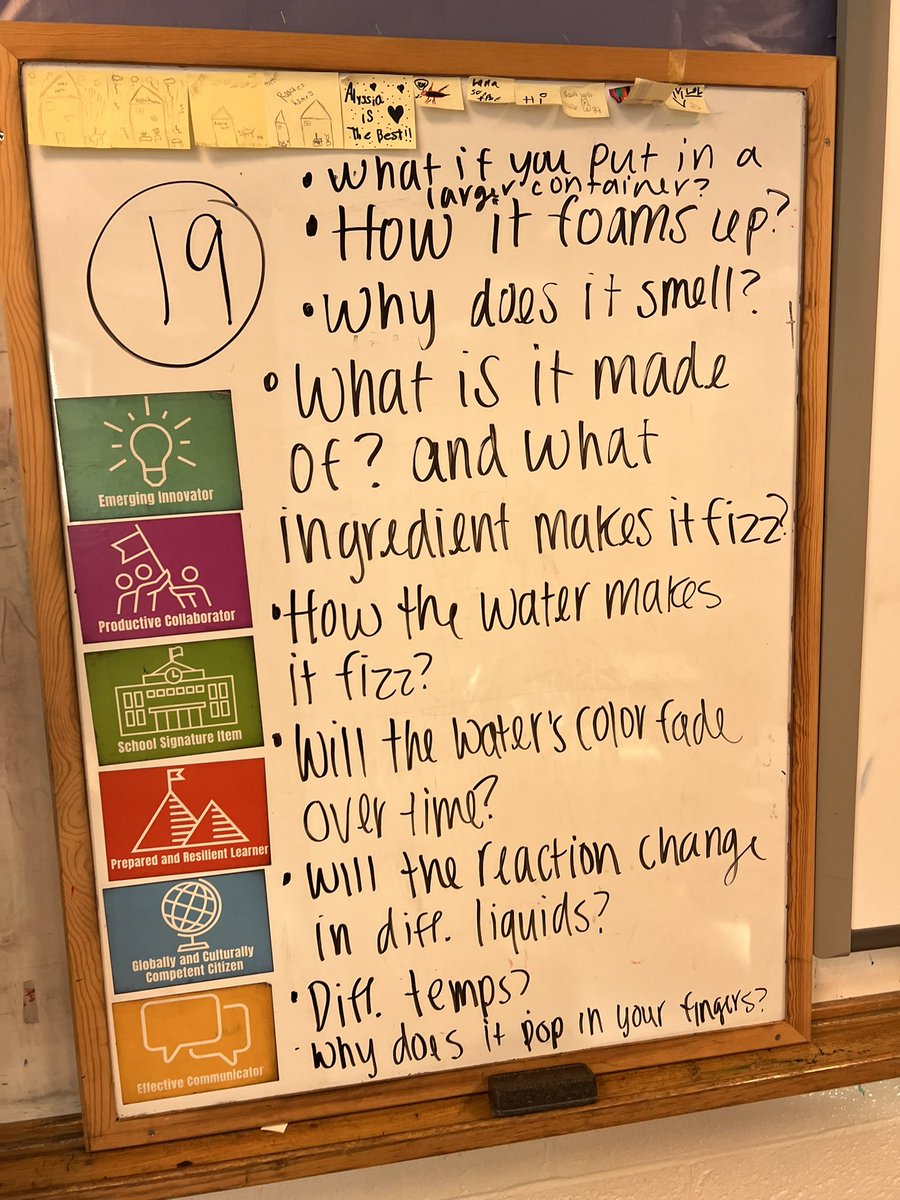 Alyssia
is
The Best!!
Hi
• What if you put in a
larger container?
• How it foams up?
19
• Why does it smell?
• What is it made
of? and what
ingredient makes it fizz?
• How the water makes
it fizz?
• Will the water's color fade
over time?
• Will the reaction change
in diff. liquids?
• Diff. temps?
Why does it pop in your fingers?
Emerging Innovator
Productive Collaborator
School Signature Item
Prepared and Resilient Learner
Globally and Culturally
Competent Citizen
Effective Communicator